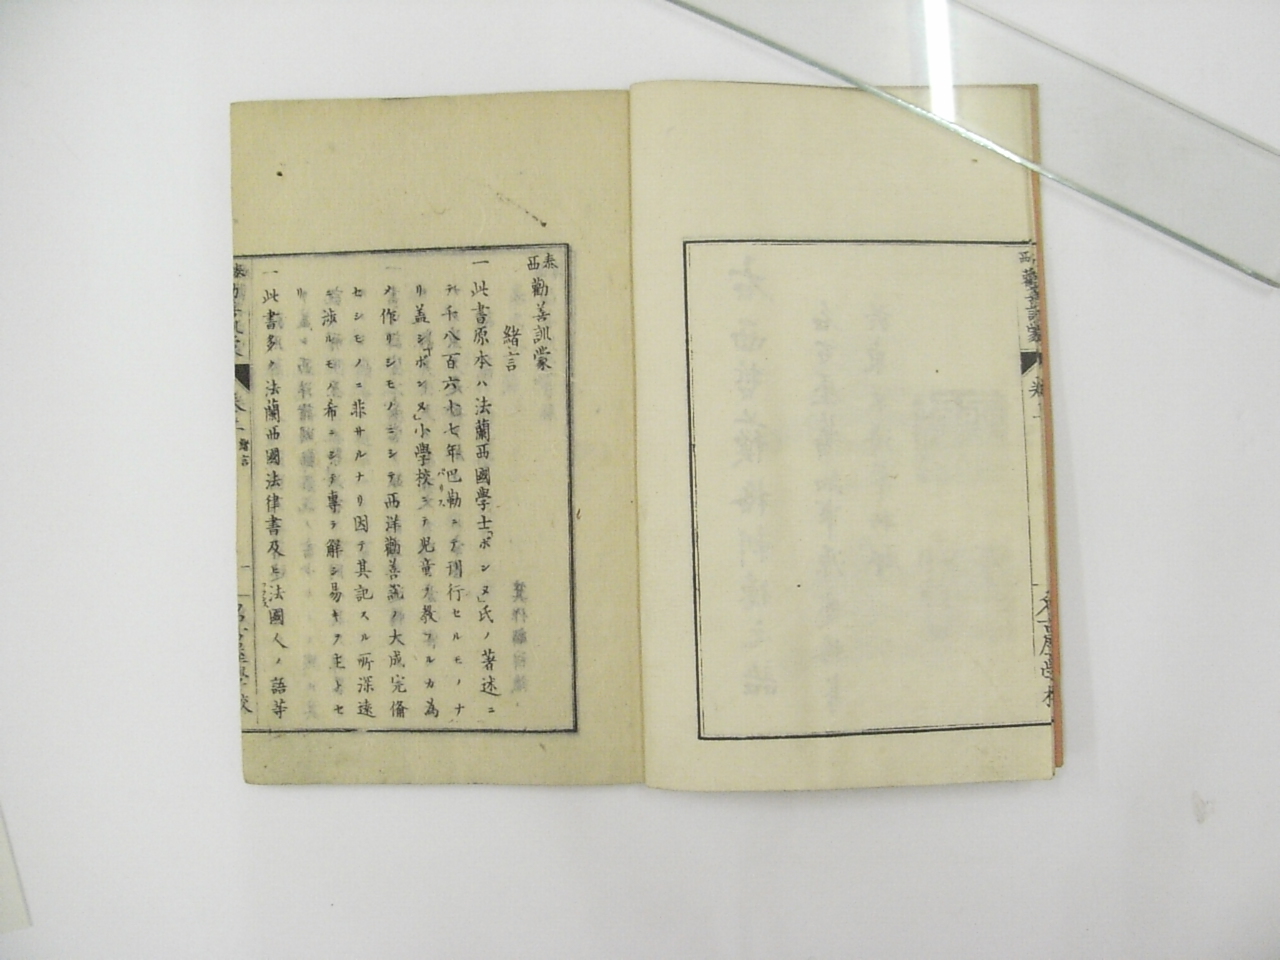 泰西勸善訓蒙
緒言
一此書原本ハ法蘭西國學士「ボンヌ」氏ノ著述ニ
テ千八百六十七年巴勒ニテ刊行セルモノナ
リ蓋シ「ボンヌ」小學校ニテ兒童ヲ教フルカ為
メ作リシモノニシテ西洋勸善説ノ大成完備
セシモノニ非サルナリ因テ其記スル所深遠
ニ渉ルモノ希ニシテ專ラ解シ易キヲ主トセ
リ
一此書多ク法蘭西國法律書及ヒ法國人ノ語等